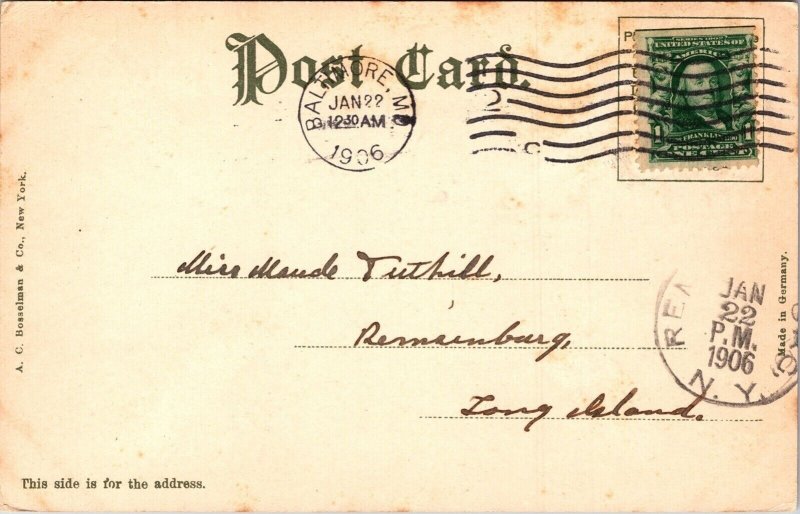 Post Card.
BALTIMORE, MD
JAN 22
12 30 AM
1906
SERIES 1902
UNITED STATES OF
AMERICA
1 FRANKLIN 1
POSTAGE
ONE CENT
A. C. Bosselman & Co., New York.
Miss Maude Tuthill,
Remsenburg,
Long Island.
JAN
22
P.M.
1906
N.Y.
Made in Germany.
This side is for the address.